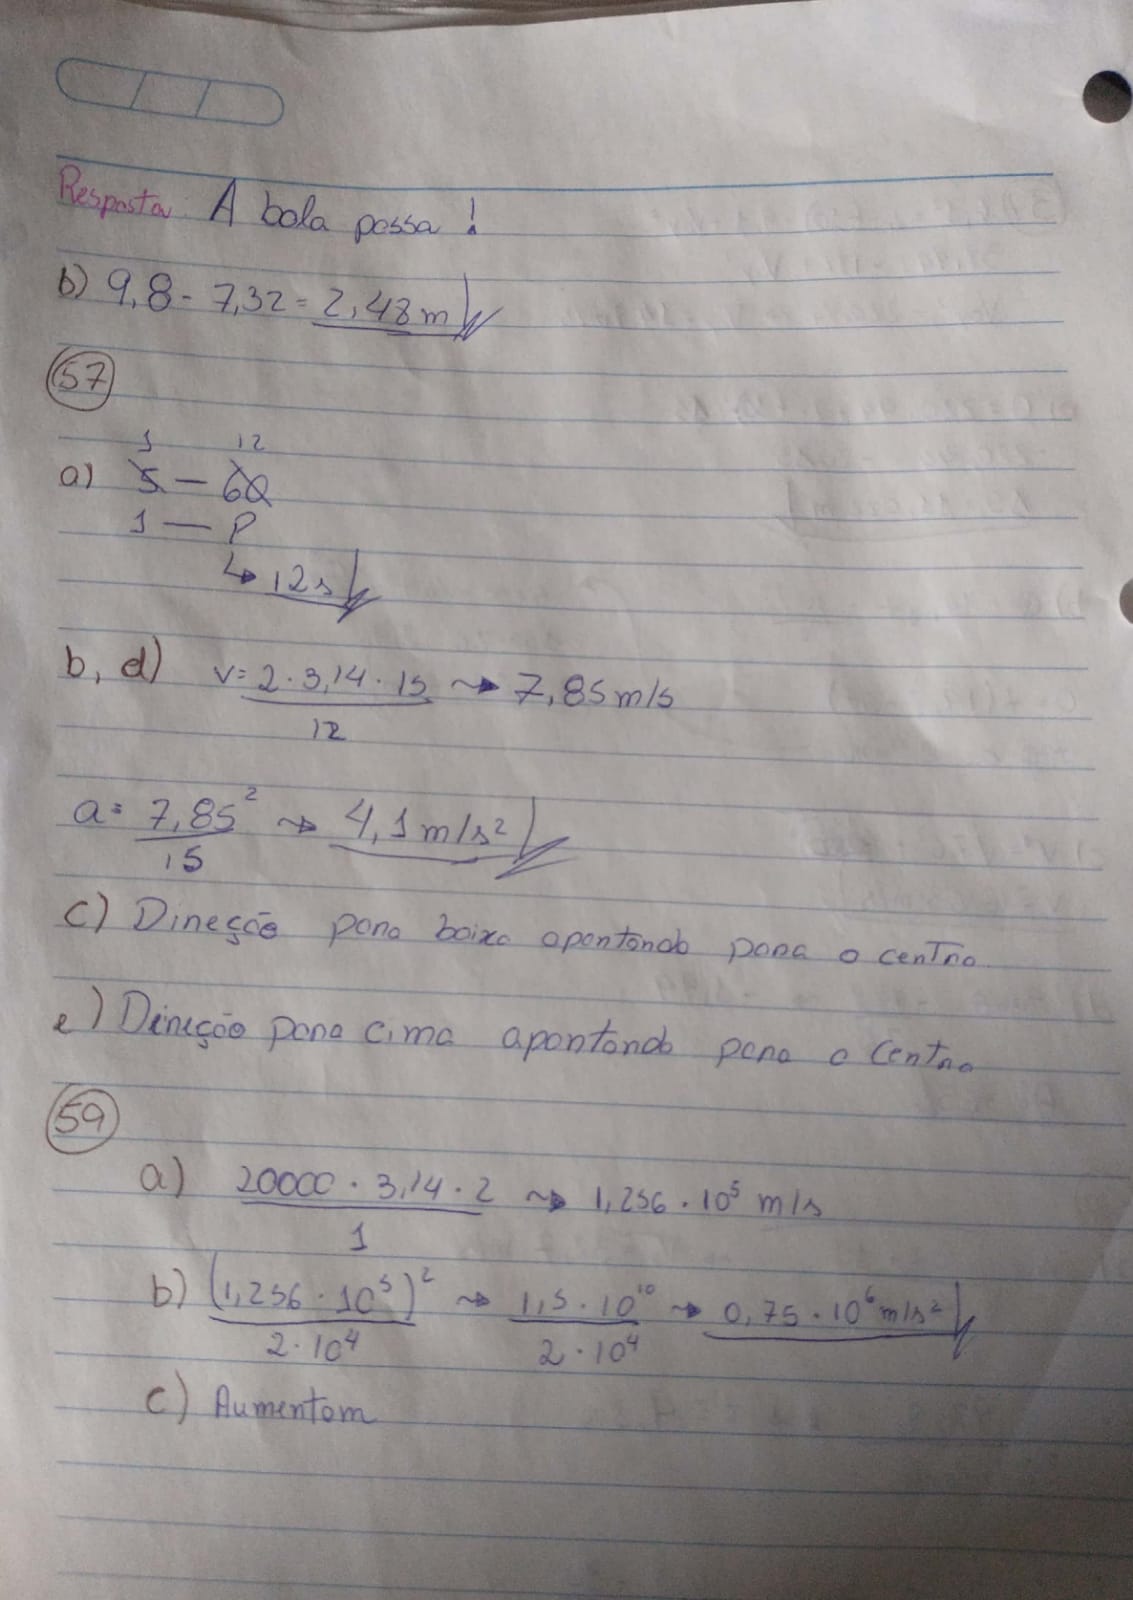 Resposta: A bola passa!
b) 9,8 - 7,32 = 2,48m
57
1 12
a) 5 — 60
1 — P
↳ 12s
b, d) v = 2 · 3,14 · 15 ⇝ 7,85 m/s
12
a = 7,85² ⇝ 4,1 m/s²
15
c) Direção para baixo apontando para o centro
e) Direção para cima apontando para o centro
59
a) 20000 · 3,14 · 2 ⇝ 1,256 · 10⁵ m/s
1
b) (1,256 · 10⁵)² ⇝ 1,5 · 10¹⁰ ⇝ 0,75 · 10⁶ m/s²
2 · 10⁴ 2 · 10⁴
c) Aumentam